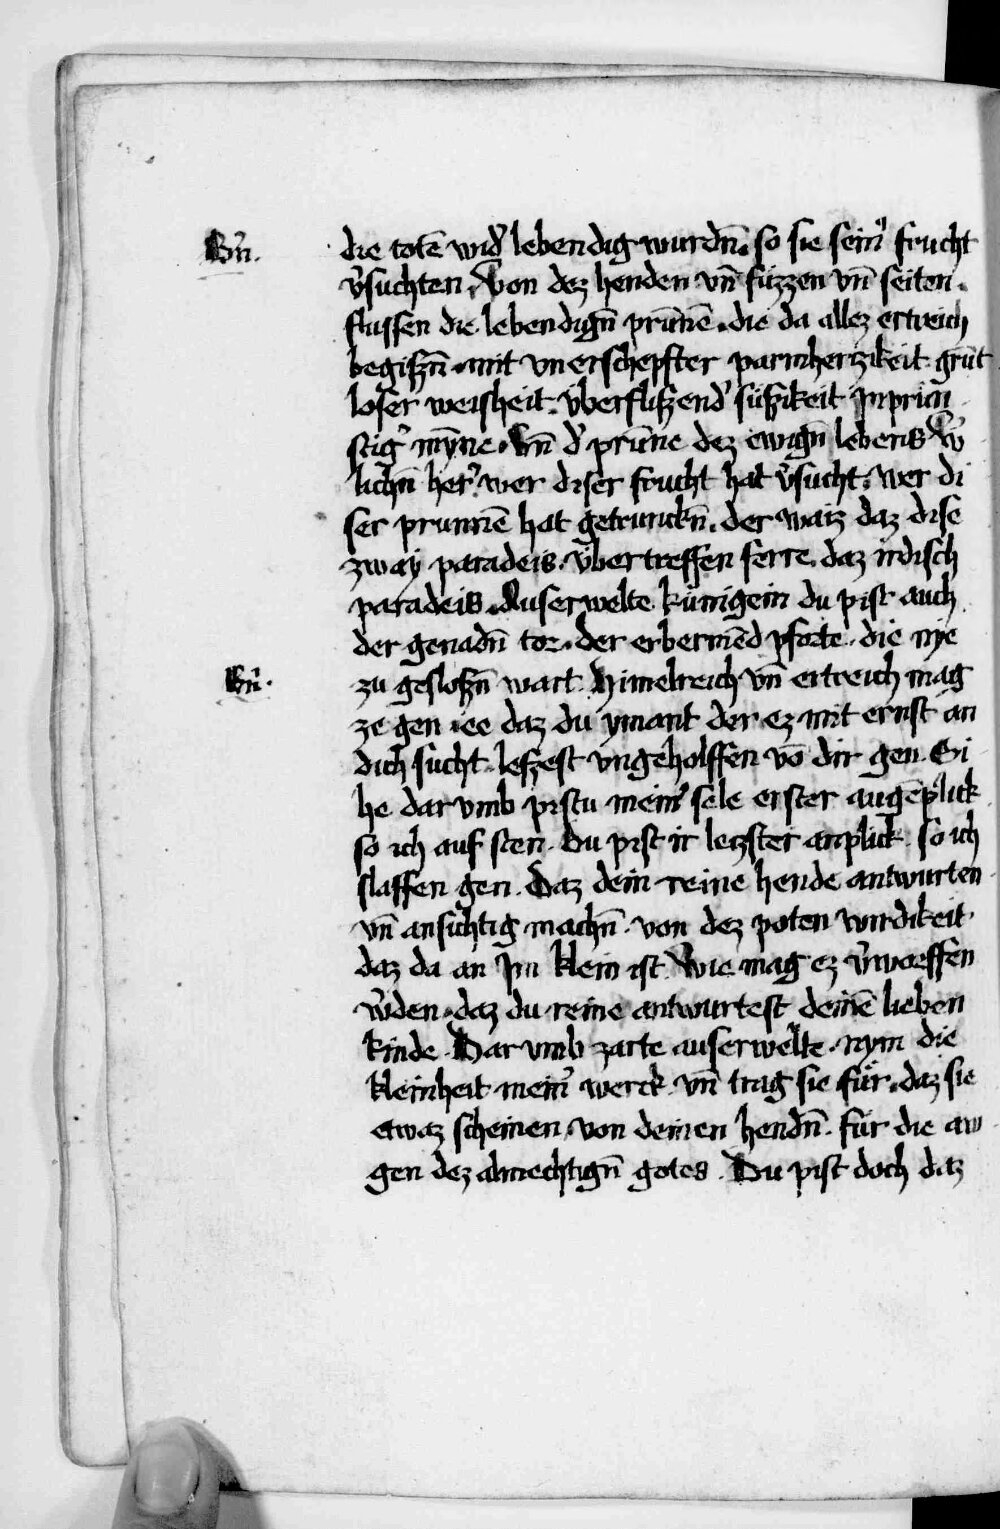 Bn̄.
die totē wid᾽ lebendig wurdn̄. so sie sein᾽ frucht
v᾽suchten. Von dez henden vn̄ füzzen vn̄ seiten.
flussen die lebendign̄ prunnē. die da allez ertreich
begißn̄. mit vnerschepfter parmherzikeit. grūt
loser weisheit. v̈berflißend᾽ süßikeit Inprün
stig᾽ mȳne. Vn̄ d᾽ prūne dez ewign̄ lebens. W᾽
lichn̄ her᾽. wer diser frucht hat v᾽sucht. wer di
ser prunnē hat getrunckn̄. der waiz daz dise
zway paradeis. v̈bertreffen ferre. daz irdisch
paradeis. Auserwelte künigein du pist auch
der genadn̄ tor. der erbermēd pforte. die nye
Bn̄.
zu gesloßn̄ wart. Himelreich vn̄ ertreich mag
ze gen. ee daz du ymant der ez mit ernst an
dich sucht. leßest vngeholffen vō dir gen. Si
he dar vmb pistu mein᾽ sele erster augēplick
so ich auf sten. Du pist ir letzster anplick. so ich
slaffen gen. Daz dein reine hende antwurten
vn̄ ansichtig machn̄. von dez poten wirdikeit.
daz da an Im klein ist. Wie mag ez v᾽worffen
w᾽den. daz du reine antwurtest deinē lieben
kinde. Dar vmb zarte auserwelte. nym die
kleinheit mein᾽ werck. vn̄ trag sie für. daz sie
etwaz scheinen. von deinen hendn̄. für die aw
gen dez almechtign̄ gotes. Du pist doch daz